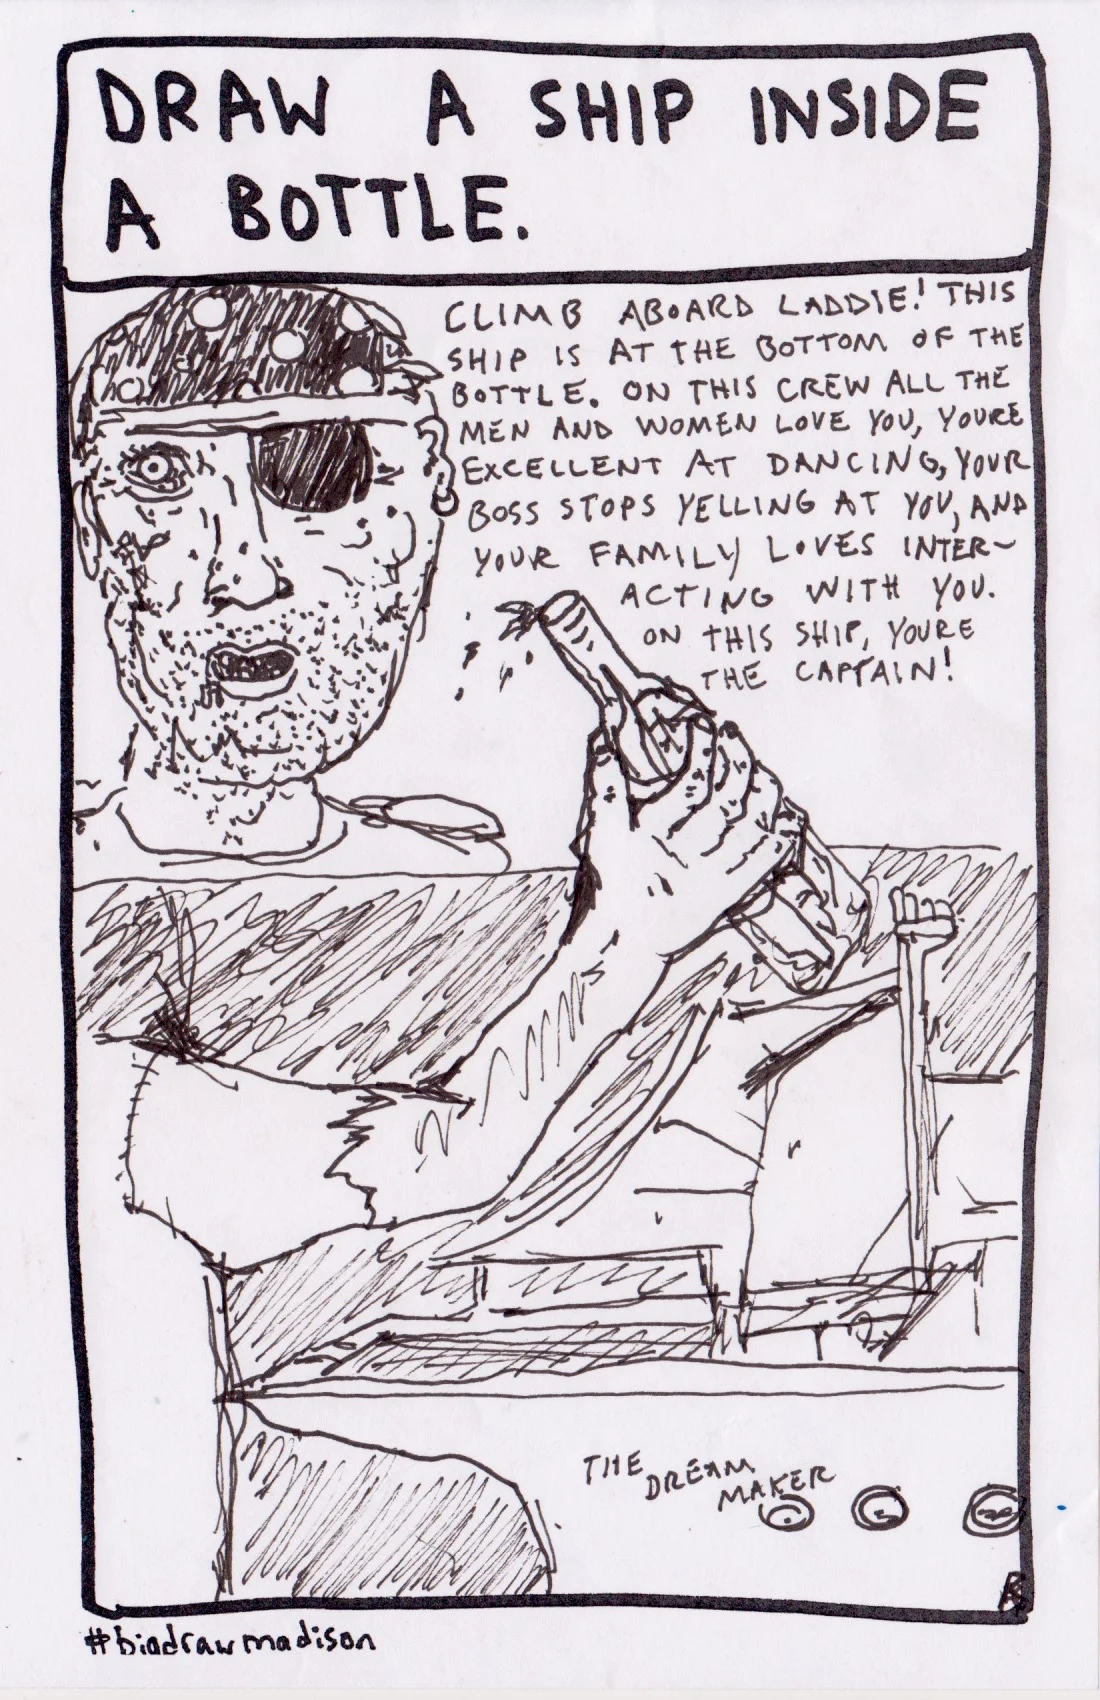 DRAW A SHIP INSIDE
A BOTTLE.
CLIMB ABOARD LADDIE! THIS
SHIP IS AT THE BOTTOM OF THE
BOTTLE. ON THIS CREW ALL THE
MEN AND WOMEN LOVE YOU, YOURE
EXCELLENT AT DANCING, YOUR
BOSS STOPS YELLING AT YOU, AND
YOUR FAMILY LOVES INTER~
ACTING WITH YOU.
ON THIS SHIP, YOURE
THE CAPTAIN!
THE
DREAM
MAKER
#biadrawmadison